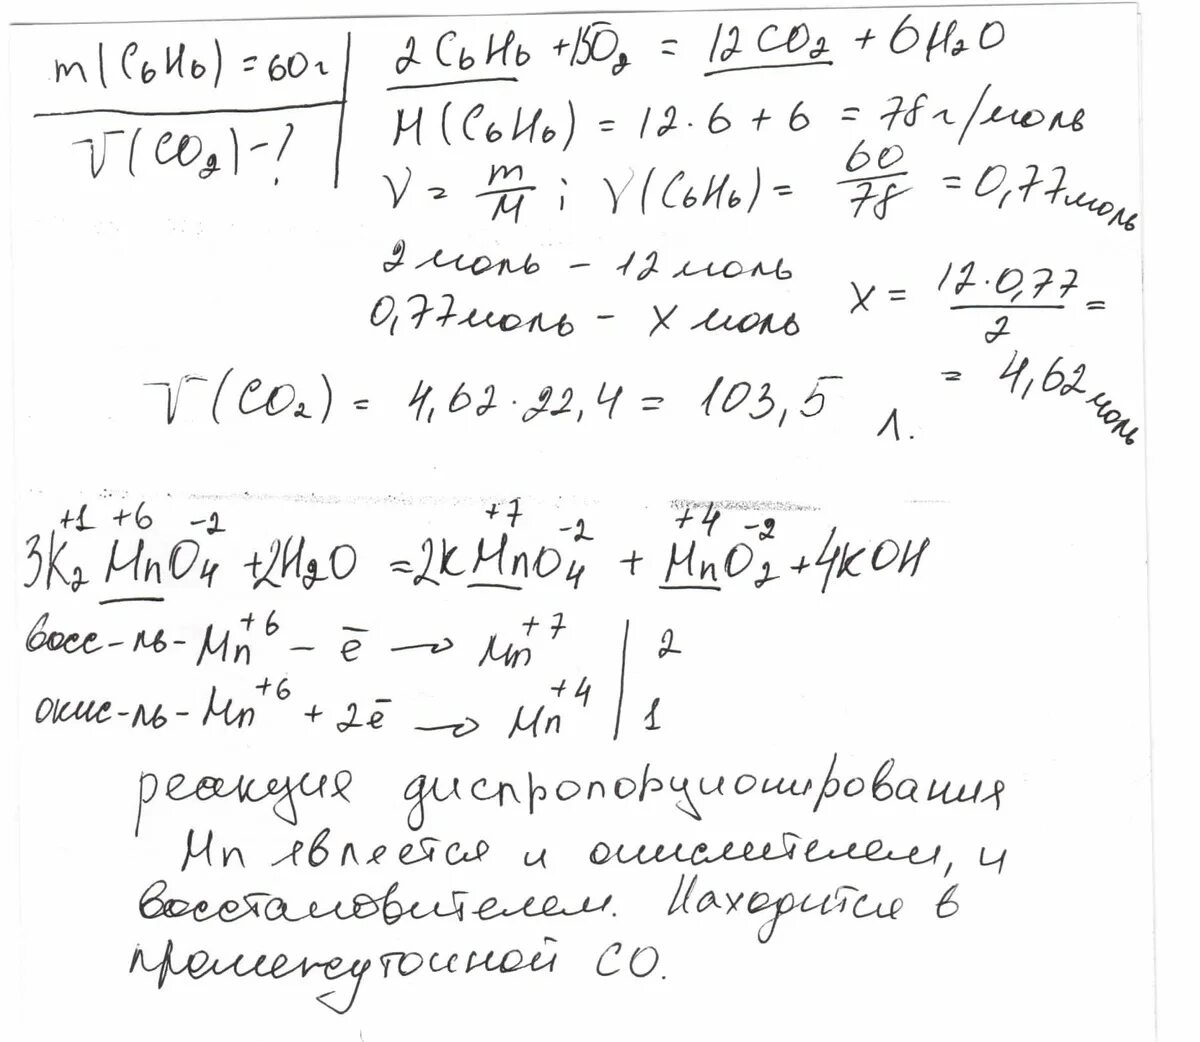 m(C₆H₆) = 60 г
V(CO₂) - ?
2C₆H₆ + 15O₂ = 12CO₂ + 6H₂O
M(C₆H₆) = 12·6 + 6 = 78 г/моль
ν = m/M ; ν(C₆H₆) = 60/78 = 0,77 моль
2 моль – 12 моль
0,77 моль – x моль
x = 12·0,77/2 =
= 4,62 моль
V(CO₂) = 4,62·22,4 = 103,5 л.
+1 +6 -2 +7 -2 +4 -2
3K₂MnO₄ + 2H₂O = 2KMnO₄ + MnO₂ + 4KOH
восс-ль - Mn⁺⁶ – ē → Mn⁺⁷ | 2
окис-ль - Mn⁺⁶ + 2ē → Mn⁺⁴ | 1
реакция диспропорционирования
Mn является и окислителем, и
восстановителем. Находится в
промежуточной СО.